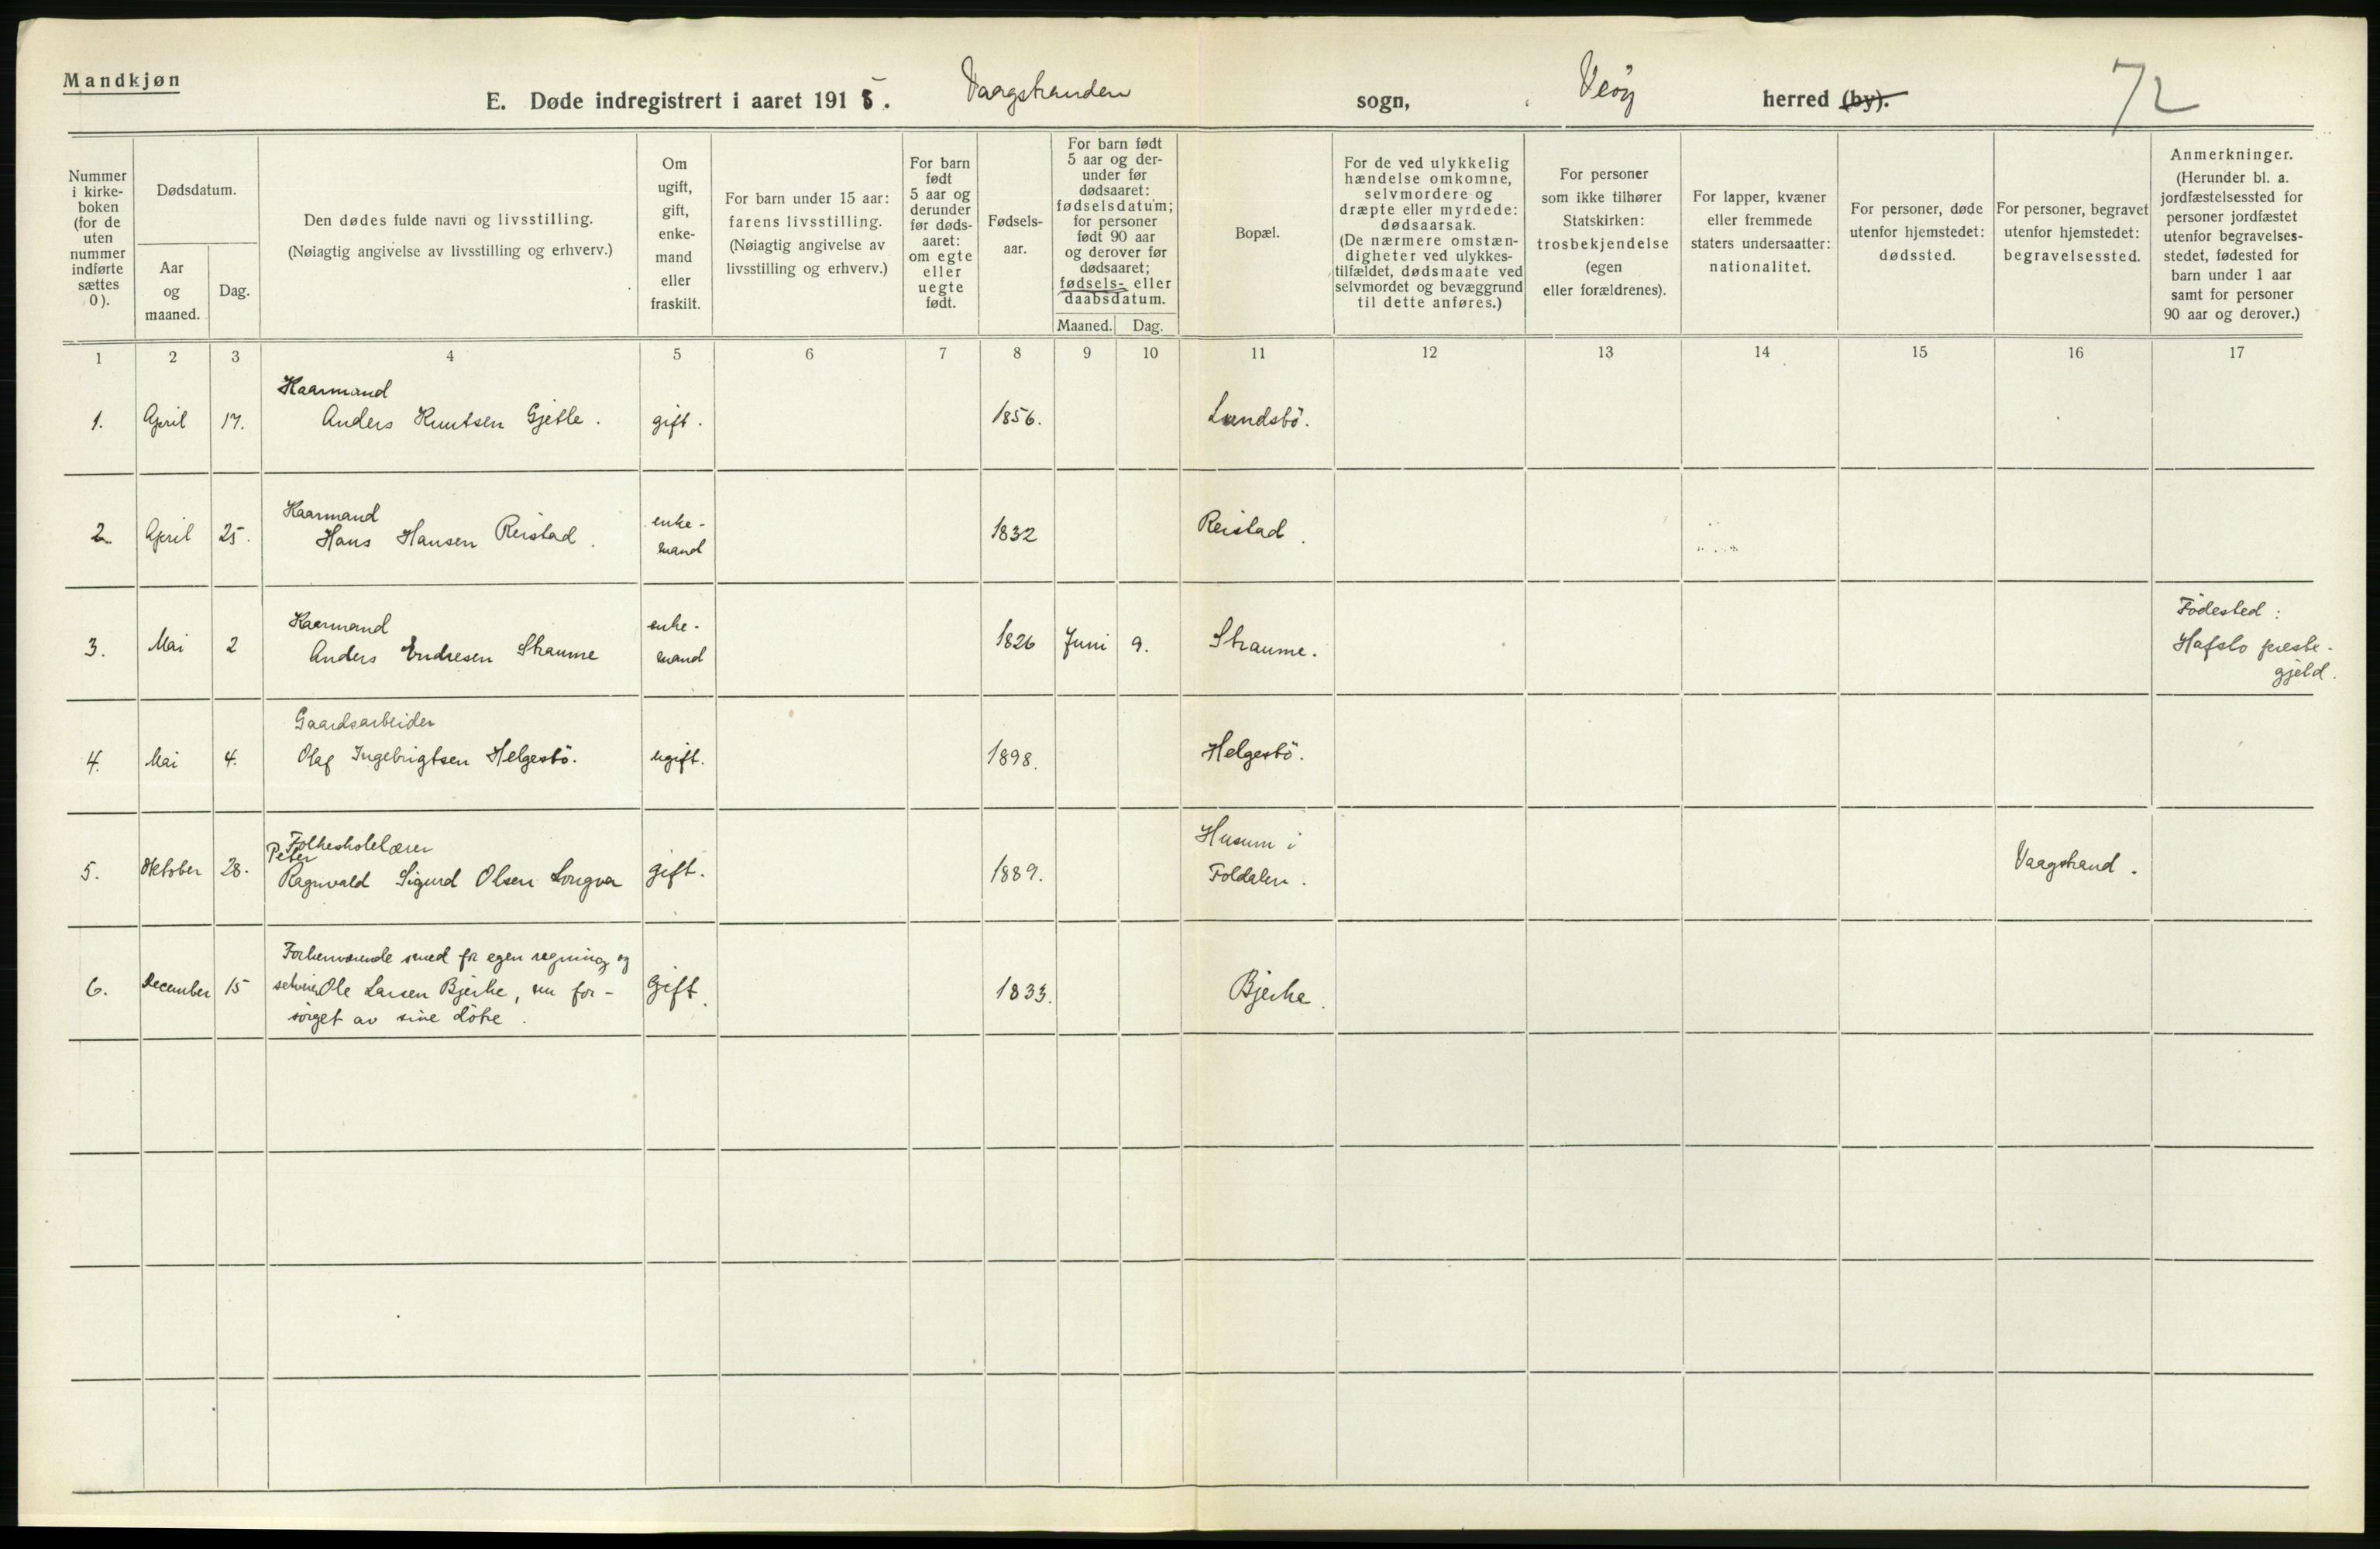 Mandkjøn
E. Døde indregistrert i aaret 1915. Vaagstranden sogn, Veöy herred (by). 72
Nummer i kirke-boken (for de uten nummer indførte sættes 0).
Dødsdatum.
Aar og maaned.
Dag.
Den dødes fulde navn og livsstilling.
(Nøiagtig angivelse av livsstilling og erhverv.)
Om ugift, gift, enke-mand eller fraskilt.
For barn under 15 aar: farens livsstilling.
(Nøiagtig angivelse av livsstilling og erhverv.)
For barn født 5 aar og derunder før døds-aaret: om egte eller uegte født.
Fødsels-aar.
For barn født 5 aar og der-under før dødsaaret: fødselsdatum; for personer født 90 aar og derover før dødsaaret; fødsels- eller daabsdatum.
Maaned. Dag.
Bopæl.
For de ved ulykkelig hændelse omkomne, selvmordere og dræpte eller myrdede: dødsaarsak.
(De nærmere omstæn-digheter ved ulykkes-tilfældet, dødsmaate ved selvmordet og bevæggrund til dette anføres.)
For personer som ikke tilhører Statskirken: trosbekjendelse (egen eller forældrenes).
For lapper, kvæner eller fremmede staters undersaatter: nationalitet.
For personer, døde utenfor hjemstedet: dødssted.
For personer, begravet utenfor hjemstedet: begravelsessted.
Anmerkninger.
(Herunder bl. a. jordfæstelsessted for personer jordfæstet utenfor begravelses-stedet, fødested for barn under 1 aar samt for personer 90 aar og derover.)
1 2 3 4 5 6 7 8 9 10 11 12 13 14 15 16 17
Kaarmand
1. April 17. Anders Knutsen Gjetle. gift. 1856. Lundsbö.
Kaarmand
2. April 25. Hans Hansen Reistad. enke-mand 1832 Reistad.
Kaarmand
3. Mai 2 Anders Endresen Straume enke-mand 1826 Juni 9. Straume. Födested: Hafslo preste-gjeld.
Gaardsarbeider
4. Mai 4. Olaf Ingebrigtsen Helgesbö. ugift. 1898. Helgesbö.
Folkeskolelærer
5. Oktober 28. Peter Ragnvald Sigurd Olsen Longva gift. 1889. Husum i Toldalen. Vaagstrand.
Forhenværende smed for egen regning og
6. December 15 selveier Ole Larsen Bjerke, nu for- Gift. 1833. Bjerke.
sörget av sine dötre.